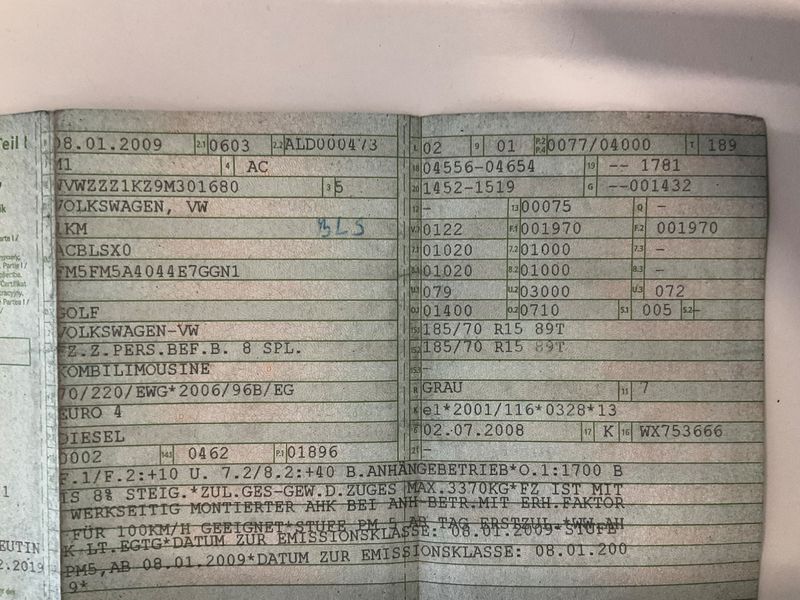 Teil I
08.01.2009 2.1 0603 2.2 ALD000473 L 02 9 01 P.2 P.4 0077/04000 T 189
M1 4 AC 18 04556-04654 19 -- 1781
WVWZZZ1KZ9M301680 3 5 20 1452-1519 G --001432
VOLKSWAGEN, VW 12 - 13 00075 Q -
1KM BLS V.7 0122 F.1 001970 F.2 001970
ACBLSX0 7.1 01020 7.2 01000 7.3 -
FM5FM5A4044E7GGN1 8.1 01020 8.2 01000 8.3 -
U.1 079 U.2 03000 U.3 072
GOLF O.1 01400 O.2 0710 S.1 005 S.2 -
VOLKSWAGEN-VW 15.1 185/70 R15 89T
FZ.Z.PERS.BEF.B. 8 SPL. 15.2 185/70 R15 89T
KOMBILIMOUSINE 15.3 -
70/220/EWG*2006/96B/EG R GRAU 11 7
EURO 4 K e1*2001/116*0328*13
DIESEL 6 02.07.2008 17 K 16 WX753666
0002 14.1 0462 P.1 01896 21 -
F.1/F.2:+10 U. 7.2/8.2:+40 B.ANHÄNGEBETRIEB*O.1:1700 B
IS 8% STEIG.*ZUL.GES-GEW.D.ZUGES MAX.3370KG*FZ IST MIT
WERKSEITIG MONTIERTER AHK BEI ANH-BETR.MIT ERH.FAKTOR
FÜR 100KM/H GEEIGNET*STUFE PM 5 AB TAG ERSTZUL.*WW.AH
K LT.EGTG*DATUM ZUR EMISSIONSKLASSE: 08.01.2009*STUFE
PM5,AB 08.01.2009*DATUM ZUR EMISSIONSKLASSE: 08.01.200
9*
EUTIN
2.2019